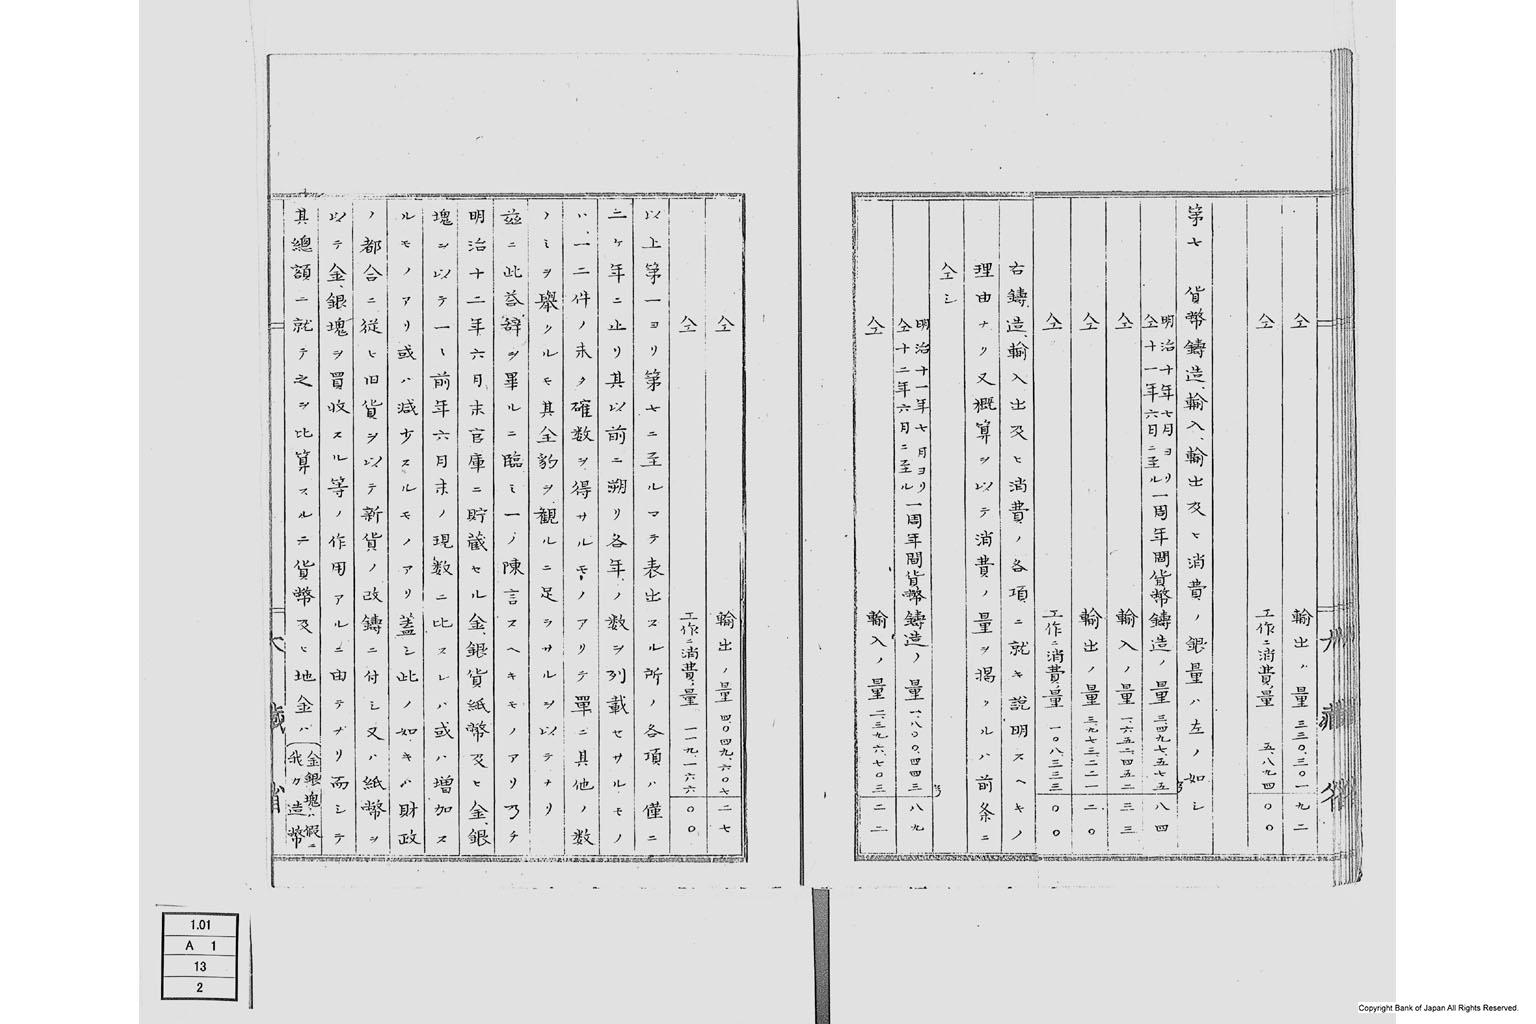 仝　輸出ノ量　三三〇、三〇一　九二
仝　工作ニ消費ノ量　五、八九四　〇〇
第七　貨幣鋳造、輸入、輸出及ヒ消費ノ銀量ハ左ノ如シ
明治十年七月ヨリ
仝十一年六月ニ至ル一周年間貨幣鋳造ノ量　三、四九七、五七五　八四
仝　輸入ノ量　一、六五二、四五二　三三
仝　輸出ノ量　三、九七三、二二一　二〇
仝　工作ニ消費ノ量　一〇八、三三三　〇〇
右鋳造、輸入出及ヒ消費ノ各項ニ就キ説明スヘキノ
理由ナリ又概算ヲ以テ消費ノ量ヲ掲クルハ前条ニ
仝シ
明治十一年七月ヨリ
仝十二年六月ニ至ル一周年間貨幣鋳造ノ量　一、八〇〇、四四三　八九
仝　輸入ノ量　二、三九六、七〇三　二二
仝　輸出ノ量　四、〇四九、六〇七　二七
仝　工作ニ消費ノ量　一一九、一六六　〇〇
以上第一ヨリ第七ニ至ルマテ表出スル所ノ各項ハ僅ニ
二ケ年ニ止リ其以前ニ溯リ各年ノ数ヲ列載セサルモノ
ハ、一二件ノ未タ確数ヲ得サルモノアリテ単ニ其他ノ数
ノミヲ挙クルモ其全豹ヲ観ルニ足ラサルヲ以テナリ
茲ニ此答辞ヲ畢ルニ臨ミ一ノ陳言スヘキモノアリ乃チ
明治十二年六月末官庫ニ貯蔵セル金、銀貨紙幣及ヒ金、銀
塊ヲ以テ一ノ前年六月末ノ現数ニ比スレハ或ハ増加ス
ルモノアリ或ハ減少スルモノアリ蓋シ此ノ如キハ財政
ノ都合ニ従ヒ旧貨ヲ以テ新貨ノ改鋳ニ付シ又ハ紙幣ヲ
以テ金、銀塊ヲ買収スル等ノ作用アルニ由テナリ而シテ
其総額ニ就テ之ヲ比算スルニ貨幣及ヒ地金ハ
金銀塊ハ假ニ
我カ造幣
大蔵省
1.01
A 1
13
2
Copyright Bank of Japan All Rights Reserved.